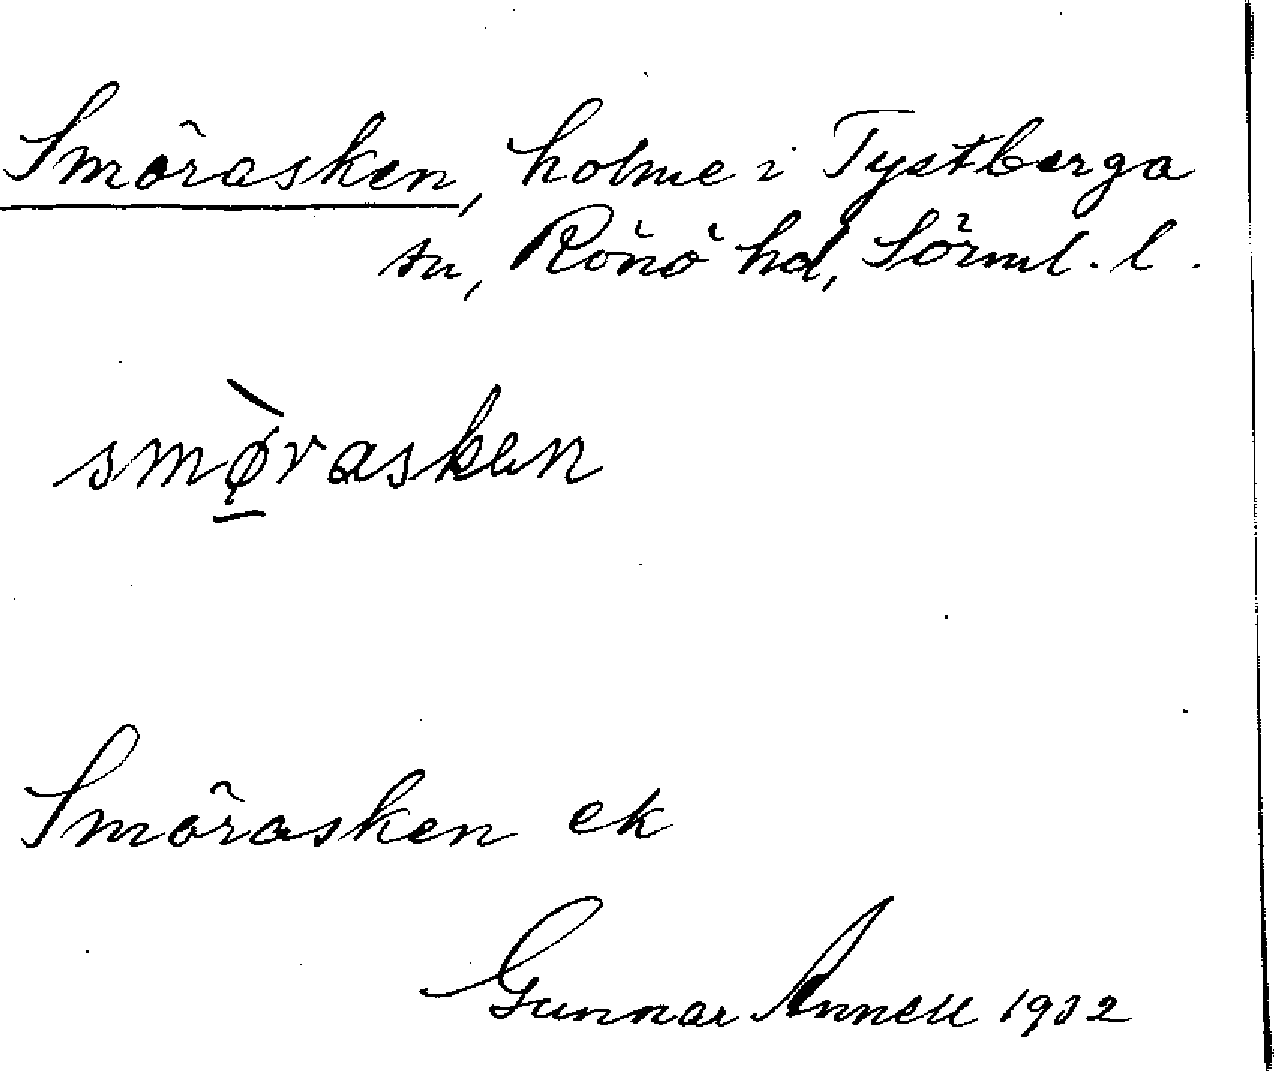 Smörasken, holme i Tystberga
sn, Rönö hd, Sörml. l.
smø̀rasken
Smörasken ek
Gunnar Annell 1932